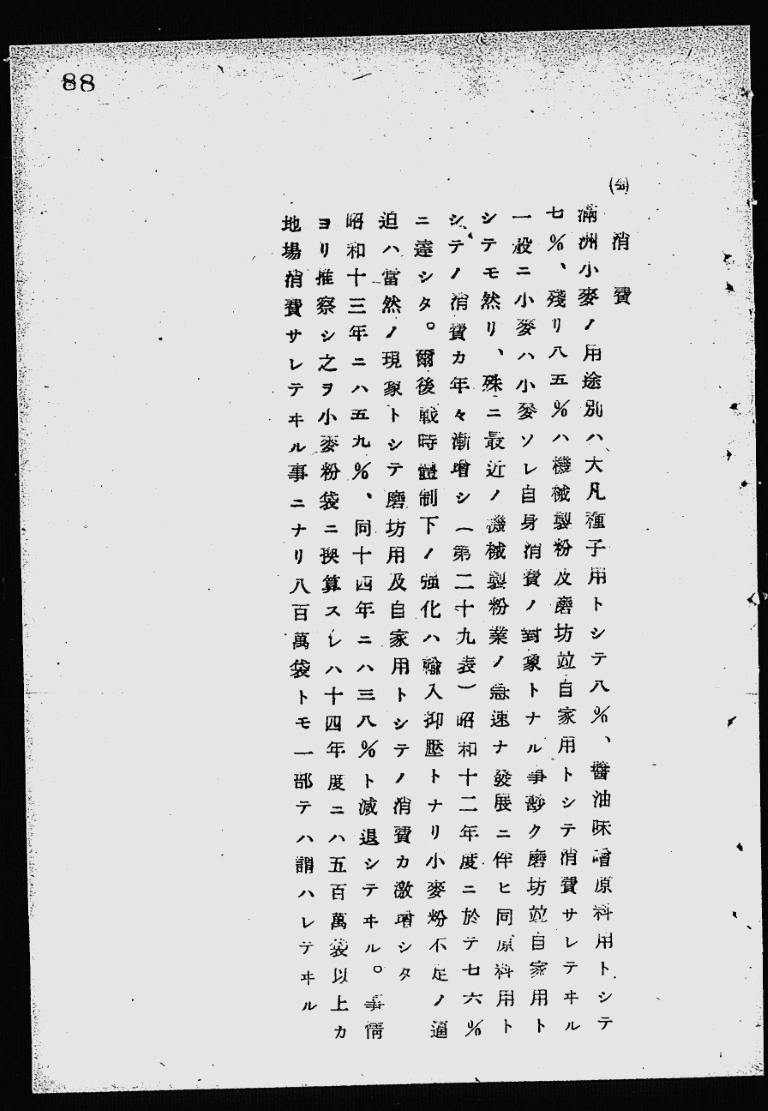 88
(四)
消費
滿洲小麥ノ用途別ハ大凡種子用トシテ八%、醤油味噌原料用トシテ
七%、殘リ八五%ハ機械製粉及磨坊竝自家用トシテ消費サレテヰル
一般ニ小麥ハ小麥ソレ自身消費ノ對象トナル事尠ク磨坊竝自家用ト
シテモ然リ、殊ニ最近ノ機械製粉業ノ急速ナ發展ニ伴ヒ同原料用ト
シテノ消費カ年々漸增シ(第二十九表)昭和十二年度ニ於テ七六%
ニ達シタ。爾後戰時體制下ノ強化ハ輸入抑壓トナリ小麥粉不足ノ逼
迫ハ當然ノ現象トシテ磨坊用及自家用トシテノ消費カ激增シタ
昭和十三年ニハ五九%、同十四年ニハ三八%ト減退シテヰル。事情
ヨリ推察シ之ヲ小麥粉袋ニ換算スレハ十四年度ニハ五百萬袋以上カ
地場消費サレテヰル事ニナリ八百萬袋トモ一部テハ謂ハレテヰル